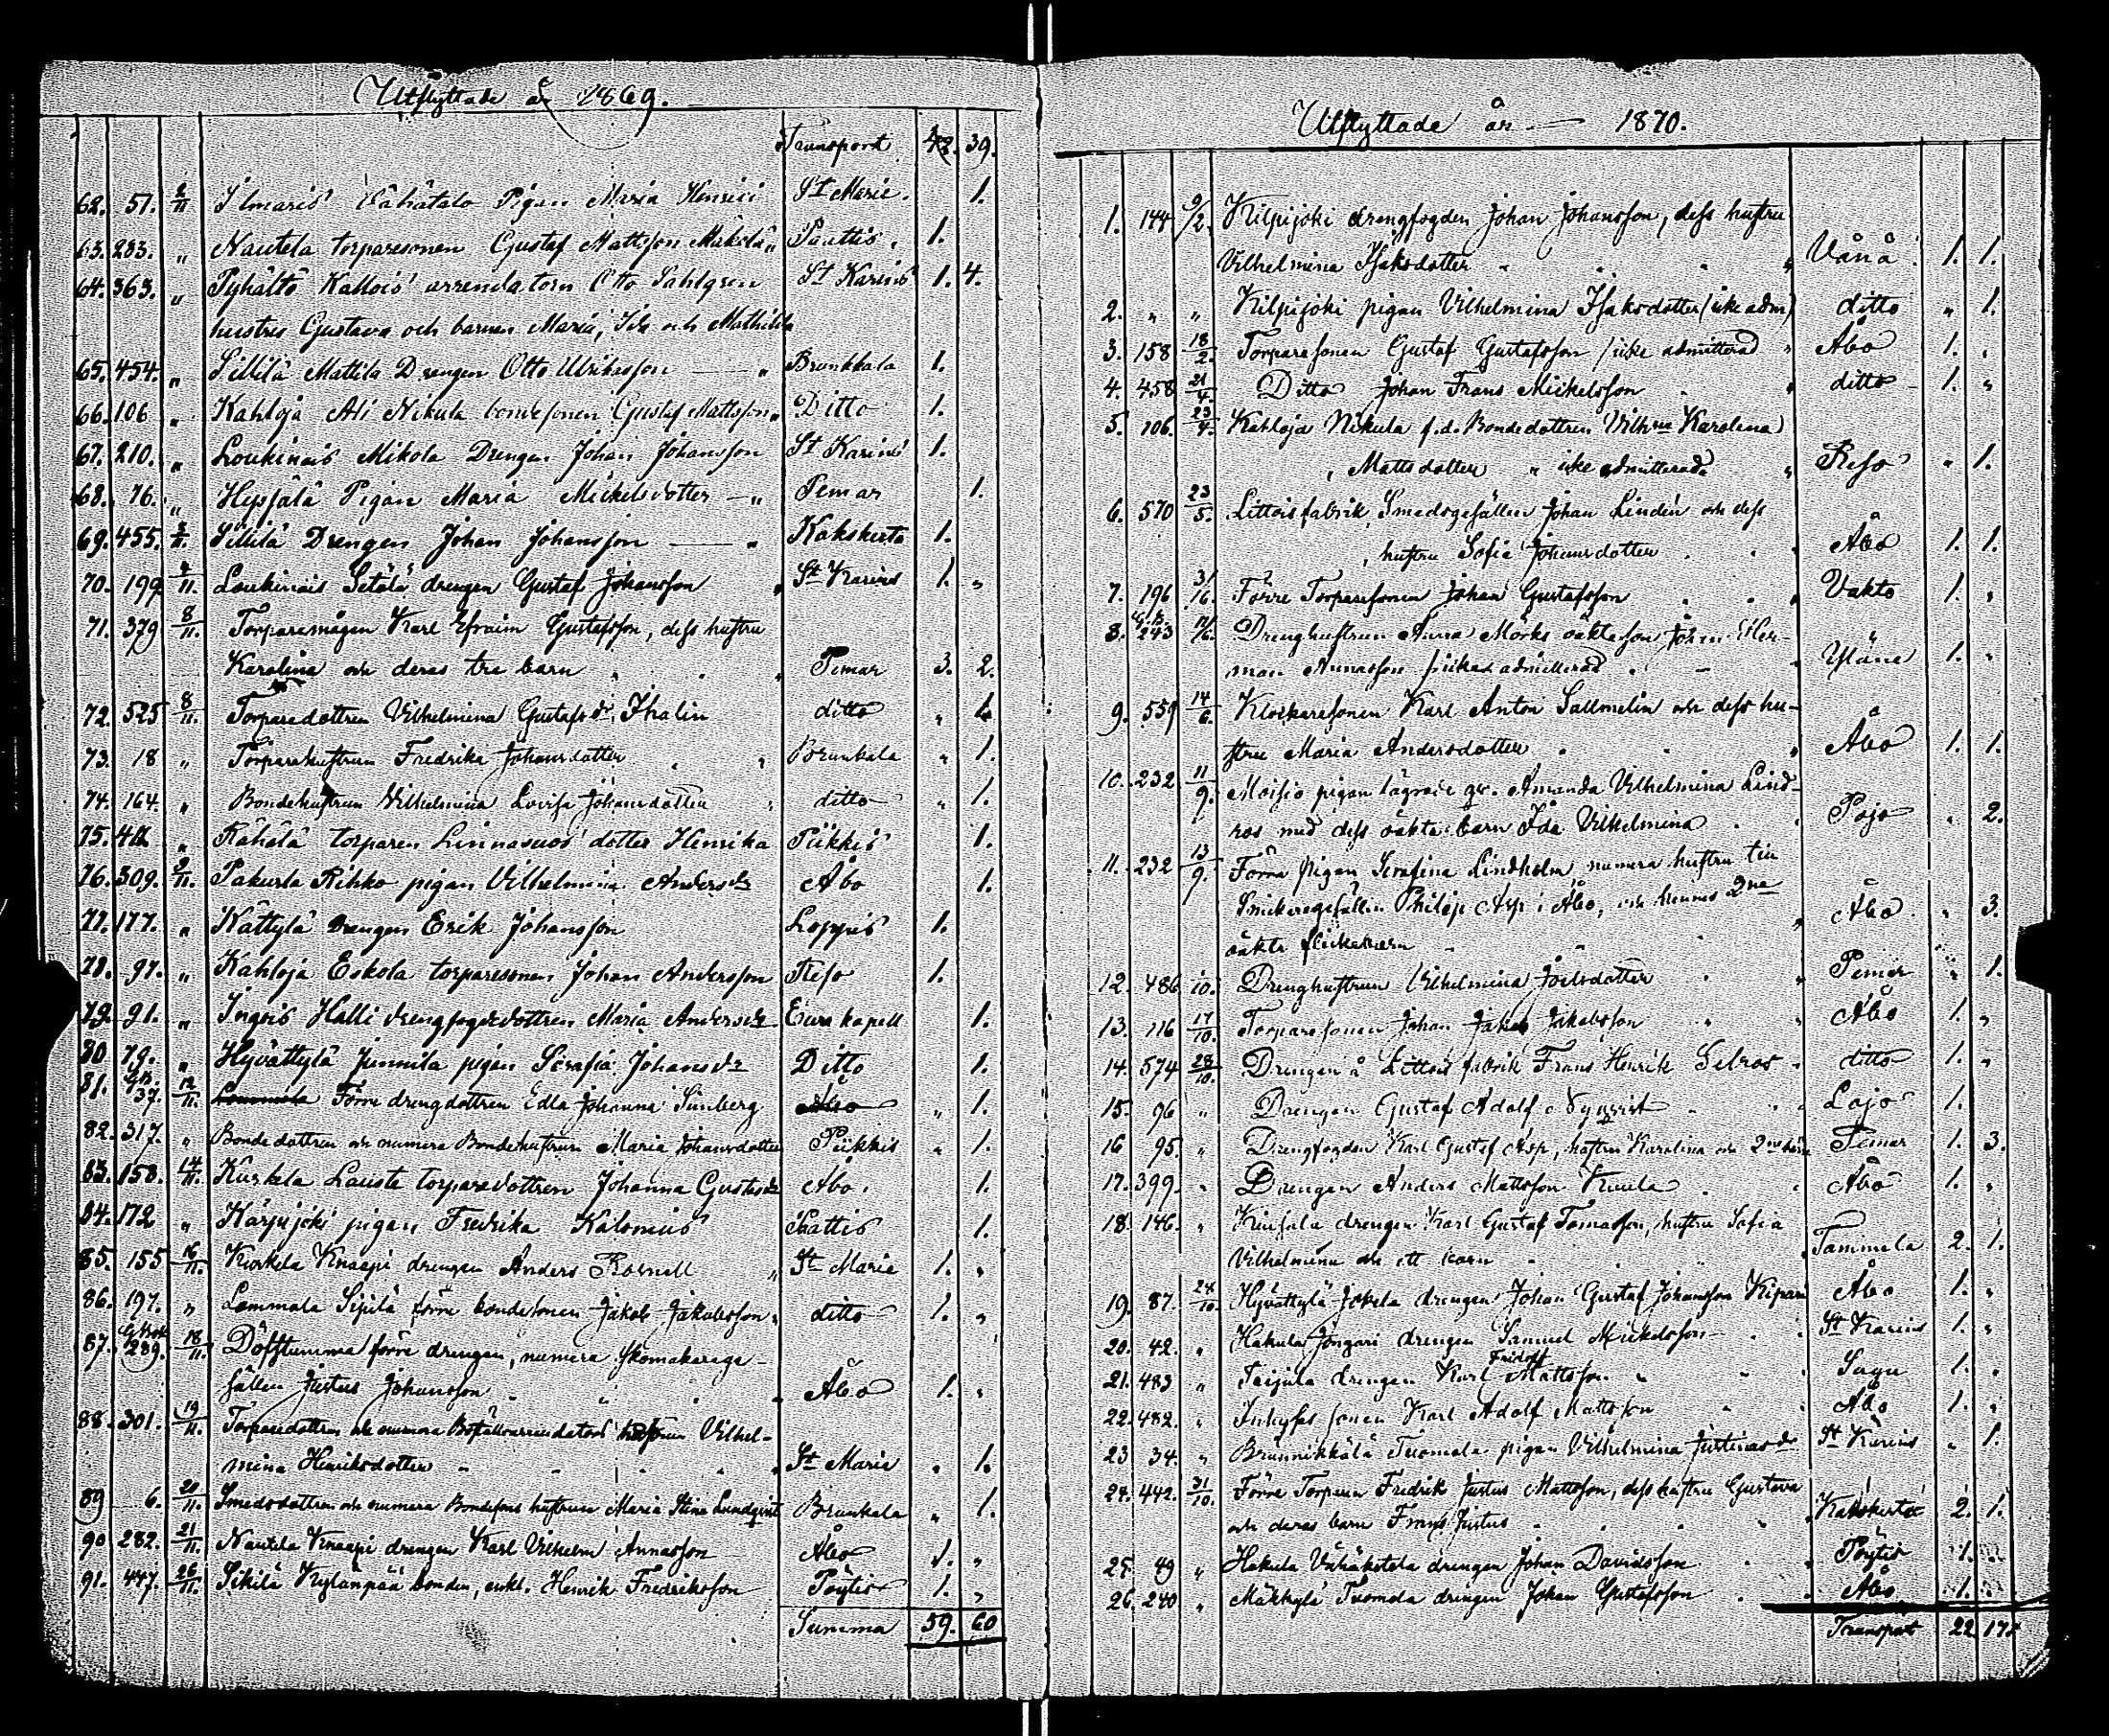 Utflyttade år 1869.
Transport 42. 39.
62. 51. 2/11 Ilmaris Vähätalo Pigan Maria Henrici St Marie. 1.
63. 233. " Nautela torparesonen Gustaf Mattsson Mäkelä " Pauttis. 1.
64. 363. " Pyhältö Kallois arrendatorn Otto Sahlgren St Karins 1. 4.
hustru Gustava och barnen Maria, Ida och Mathilda
65. 454. " Sillilä Mattila Drengen Otto Ulriksson " Brunkkala 1.
66. 106 " Kahloja Ali Nikula bondesonen Gustaf Mattsson " Ditto 1.
67. 210. " Loukinais Mikola Drengen Johan Johansson St Karins 1.
68. 76. " Hepsälä Pigan Maria Mickelsdotter " Pemar 1.
69. 455. 2/11. Sillilä Drengen Johan Johansson " Kakskerta 1.
70. 199 4/11. Loukinais Setälä drengen Gustaf Johansson " St Karins 1. "
71. 379 8/11. Torparemågen Karl Efraim Gustafsson, dess hustru
Karolina och deras tre barn " Pemar 3. 2.
72. 525 8/11. Torparedottren Vilhelmina Gustafsdr Thalin ditto " 1.
73. 18 " Torparehustrun Fredrika Johansdotter " Brunkala " 1.
74. 164. " Bondehustrun Vilhelmina Lovisa Johansdotter " ditto " 1.
75. 412 " Rähälä torparen Linnavuos dotter Henrika Piikkis 1.
76. 309. 9/11. Pakurla Rihko pigan Vilhelmina Andersdr Åbo 1.
77. 177. " Kättylä Drengen Erik Johansson Loppis 1.
78. 97. " Kahloja Eskola torparesonen Johan Andersson Reso 1.
79. 91. " Ingois Halli drengfogdedottren Maria Andersdr Eura kapell 1.
80 79. " Hyvättylä Junnila pigan Serafia Johansdr Ditto 1.
81. GB. 37. 12/11. Lammala Förre drengdottren Edla Johanna Sünberg Åbo " 1.
82. 317. " Bondedottren och numera Bondehustrun Maria Johansdotter Piikkis " 1.
83. 158. 14/11. Kurkela Lausta torparedottren Johanna Gustafsdr Åbo. 1.
84. 172 " Karjujoki pigan Fredrika Kalenius Pattis 1.
85. 155 16/11. Kurkela Knaapi drengen Anders Rosnell " St Marie 1. "
86. 197. " Lammala Sipilä förre bondesonen Jakob Jakobsson " ditto 1. "
87. GBok 289. 18/11. Döfstumma förre drengen, numera Skomakarege-
sällen Justus Johansson " Åbo 1. "
88. 301. 19/11. Torparedottren och numera Boställsarrendators hustrun Vilhel-
mina Henriksdotter " St Marie " 1.
89 6. 20/11. Smedsdottren och numera Bondesons hustrun Maria Stina Lundqvist Brunkala " 1.
90 282. 21/11. Nautela Knaapi drengen Karl Vilhelm Annasson Åbo 1. "
91. 447. 26/11. Sikilä Kylänpää bonden, enkl. Henrik Fredriksson Pöytis 1. "
Summa 59. 60
Utflyttade år 1870.
1. 144 9/2. Kilpijoki drengfogden Johan Johansson, dess hustru
Vilhelmina Isaksdotter " Vånå 1. 1.
2. " " Kilpijoki pigan Vilhelmina Isaksdotter (icke adm) ditto " 1.
3. 158 18/2. Torparesonen Gustaf Gustafsson (icke admitterad " Åbo 1. "
4. 458 21/4. Ditto Johan Frans Mickelsson " ditto 1. "
5. 106. 23/4. Kahloja Nikula f.d. Bondedottren Vilhna Karolina
Mattsdotter " icke admitterade " Reso " 1.
6. 570 23/5. Littois fabrik, Smedsgesällen Johan Lindén och dess
hustru Sofia Johansdotter " Åbo 1. 1.
7. 196 3/16. Förre Torparesonen Johan Gustafsson " Vakto 1. "
8. G.B. 243 14/6. Drenghustrun Anna Mörks oäkta son Johan Her-
man Annasson (icke admitterad " Yläne 1. "
9. 559 14/6. Klockaresonen Karl Anton Sallmelin och dess hu-
stru Maria Andersdotter " Åbo 1. 1.
10. 232 11/9. Moisio pigan lägrade qv. Amanda Vilhelmina Lind-
ros med dess oäkta barn Ida Vilhelmina " Pojo " 2.
11. 232 13/9. Förra pigan Serafina Lindholm numera hustru till
Snickaregesällen Philip Asp i Åbo, och hennes 2ne " Åbo " 3.
oäkta flickebarn
12. 486 1/10. Drenghustrun Vilhelmina Joelsdotter " Pemar " 1.
13. 116 17/10. Torparesonen Johan Jakob Jakobsson " Åbo 1. "
14. 574 28/10. Drengen å Littois fabrik Frans Henrik Selros " ditto 1. "
15. 96 " Drengen Gustaf Adolf Nyqvist " Lojo 1.
16 95. " Drengfogden Karl Gustaf Asp, hustru Karolina och 2ne barn Pemar 1. 3.
17. 399. " Drengen Anders Mattsson Knula " Åbo 1. "
18. 146. " Kinsala drengen Karl Gustaf Tomasson, hustru Sofia
Vilhelmina och ett barn " Tammela 2. 1.
19. 87. 24/10. Hyvättylä Jokela drengen Johan Gustaf Johansson Kipari Åbo 1. "
20. 42. " Hakula Jongari drengen Samuel Mickelsson " St Karins 1. "
21. 483 " Taipula drengen Karl Fridolf Mattsson " Sagu 1. "
22. 482. " Inhyses sonen Karl Adolf Mattsson " Åbo 1. "
23 34. " Brännikkälä Tuomola pigan Vilhelmina Justinasdr St Karins " 1.
24. 442. 31/10. Förre Torparen Fredrik Justus Mattsson, dess hustru Gustava
och deras barn Frans Justus " Kakskerta 2. 1.
25. 89 " Hakula Vähäkotola drengen Johan Davidsson " Pöytis 1. "
26. 240 " Mäkkylä Tuomola drengen Johan Gustafsson " Åbo 1.
Transport 22. 17.